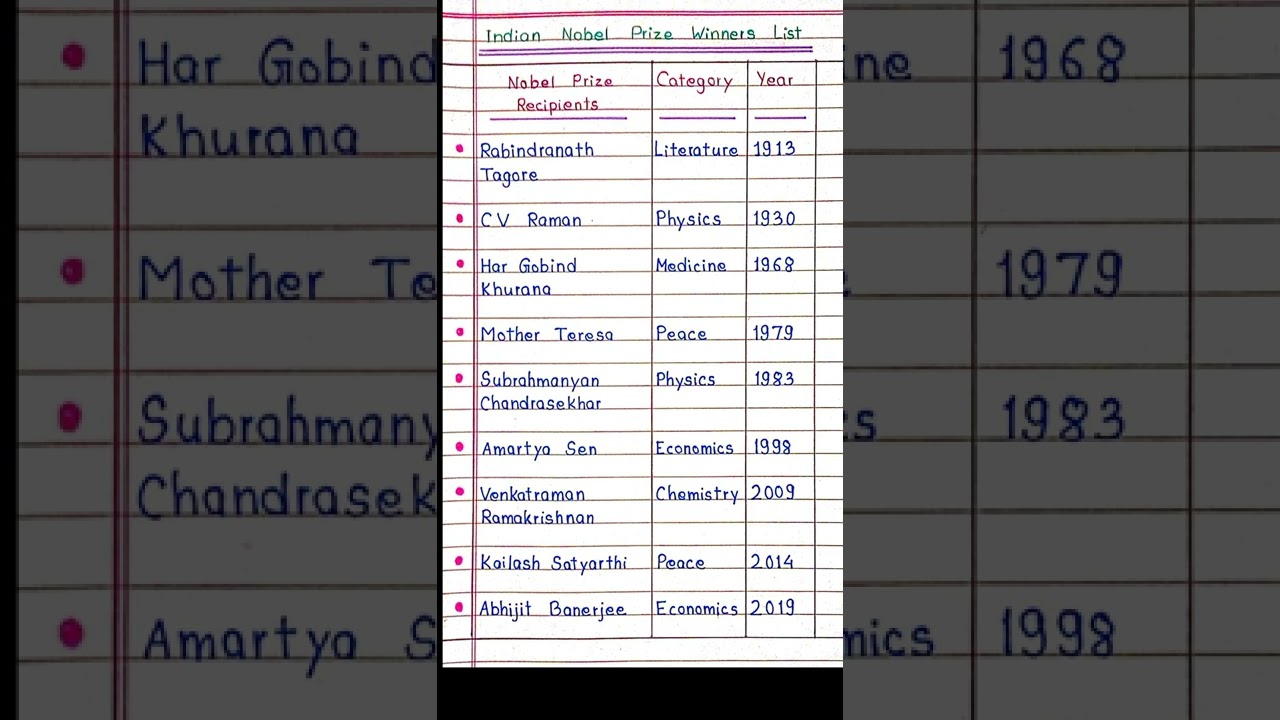 Indian Nobel Prize Winners List
Nobel Prize Category Year
Recipients
Rabindranath Literature 1913
Tagore
CV Raman Physics 1930
Har Gobind Medicine 1968
Khurana
Mother Teresa Peace 1979
Subrahmanyan Physics 1983
Chandrasekhar
Amartya Sen Economics 1998
Venkatraman Chemistry 2009
Ramakrishnan
Kailash Satyarthi Peace 2014
Abhijit Banerjee Economics 2019
Har Gobind
Khurana
Mother Te
Subrahmany
Chandrasek
Amartya S
ne 1968
1979
cs 1983
mics 1998